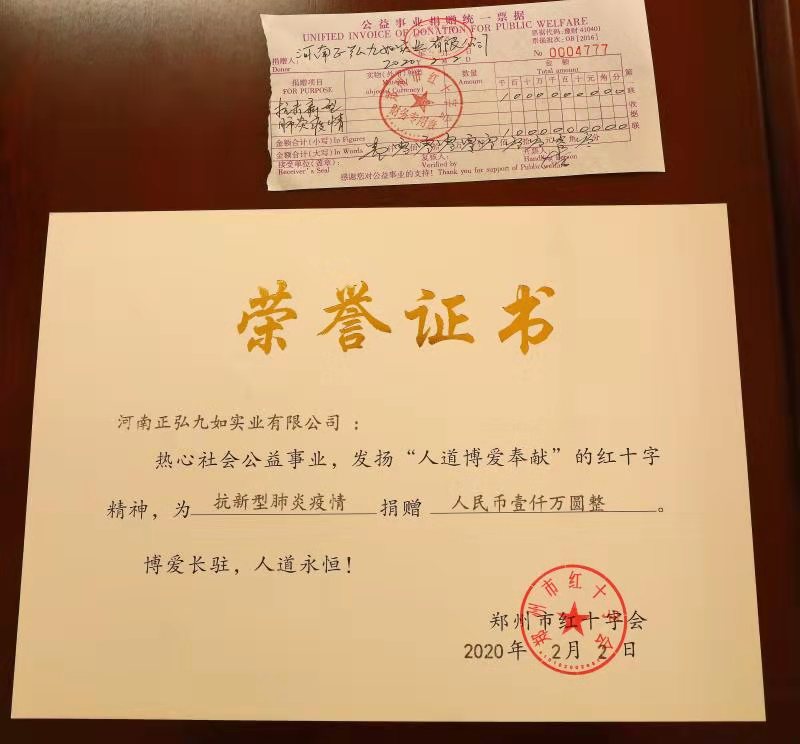 公益事业捐赠统一票据
UNIFIED INVOICE OF DONATION FOR PUBLIC WELFARE
票据代码:豫财41040
票据批次:OB[2016]
捐赠人: 河南正弘九如实业有限公司
Donor
2020 2 2
No 0004777
捐赠项目
FOR PURPOSE
实物(外币)种类
Material
(objects) Currency)
数量
Amount
金额
Total amount
千百十万千百十元角分
抗击新型
肺炎疫情
1000000000
第
联
收
据
联
金额合计(小写)In Figures
1000000000
金额合计(大写)In Words
接受单位(盖章):
Receiver's Seal
复核人:
Verified by
Handling Person
感谢您对公益事业的支持!Thank you for support of Public welfare!
郑州市红十字会
财务专用章
荣誉证书
河南正弘九如实业有限公司:
热心社会公益事业,发扬“人道博爱奉献”的红十字
精神,为 抗新型肺炎疫情 捐赠 人民币壹仟万圆整 。
博爱长驻,人道永恒!
郑州市红十字会
2020年 2月 2日
郑州市红十字会